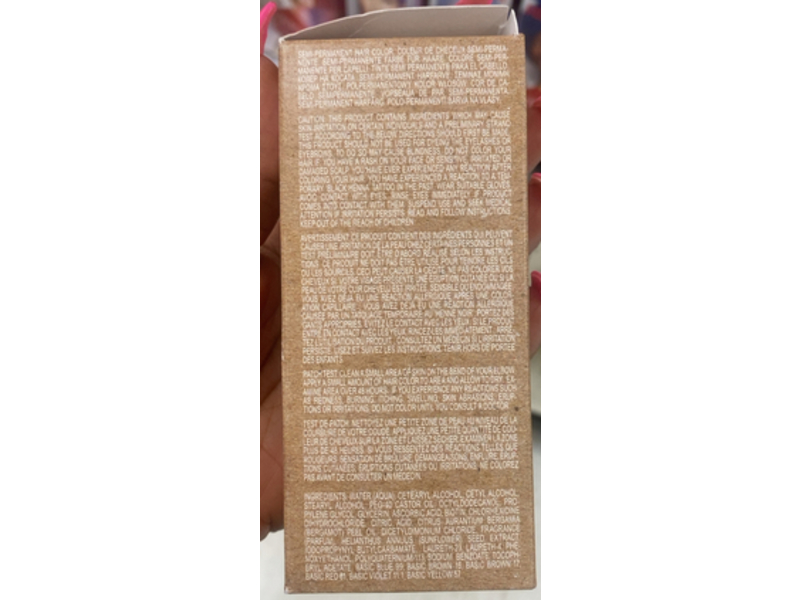 SEMI-PERMANENT HAIR COLOR. COULEUR DE CHEVEUX SEMI-PERMA-
NENTE. SEMI-PERMANENTE FARBE FÜR HAARE. COLORE SEMI-PER-
MANENTE PER CAPELLI. TINTE SEMI PERMANENTE PARA EL CABELLO.
SEMI-PERMANENT HARFARVE.
SEMI-PERMANENT HÅRFÄRG. POLO-PERMANENTÍ BARVA NA VLASY.
CAUTION: THIS PRODUCT CONTAINS INGREDIENTS WHICH MAY CAUSE
SKIN IRRITATION ON CERTAIN INDIVIDUALS AND A PRELIMINARY STRAND
TEST ACCORDING TO THE BELOW DIRECTIONS SHOULD FIRST BE MADE.
THIS PRODUCT SHOULD NOT BE USED FOR DYEING THE EYELASHES OR
EYEBROWS. TO DO SO MAY CAUSE BLINDNESS. DO NOT COLOR YOUR
HAIR IF: YOU HAVE A RASH ON YOUR FACE OR SENSITIVE, IRRITATED OR
DAMAGED SCALP. YOU HAVE EVER EXPERIENCED ANY REACTION AFTER
COLORING YOUR HAIR. YOU HAVE EXPERIENCED A REACTION TO A TEM-
PORARY BLACK HENNA TATTOO IN THE PAST. WEAR SUITABLE GLOVES.
AVOID CONTACT WITH EYES. RINSE EYES IMMEDIATELY IF PRODUCT
COMES INTO CONTACT WITH THEM. SUSPEND USE AND SEEK MEDICAL
ATTENTION IF IRRITATION PERSISTS. READ AND FOLLOW INSTRUCTIONS.
KEEP OUT OF THE REACH OF CHILDREN.
AVERTISSEMENT: CE PRODUIT CONTIENT DES INGRÉDIENTS QUI PEUVENT
CAUSER UNE IRRITATION DE LA PEAU CHEZ CERTAINES PERSONNES ET UN
TEST PRÉLIMINAIRE DOIT ÊTRE D'ABORD RÉALISÉ SELON LES INSTRUC-
TIONS. CE PRODUIT NE DOIT PAS ÊTRE UTILISÉ POUR TEINDRE LES CILS
OU LES SOURCILS, CECI PEUT CAUSER LA CÉCITÉ. NE PAS COLORER VOS
CHEVEUX SI: VOTRE VISAGE PRÉSENTE UNE ÉRUPTION CUTANÉE OU SI LA
PEAU DE VOTRE CUIR CHEVELU EST IRRITÉE, SENSIBLE OU ENDOMMAGÉE.
VOUS AVEZ DÉJÀ EU UNE RÉACTION ALLERGIQUE APRÈS UNE COLOR-
ATION CAPILLAIRE. VOUS AVEZ DÉJÀ EU UNE RÉACTION ALLERGIQUE
CAUSÉE PAR UN TATOUAGE TEMPORAIRE AU HENNÉ NOIR. PORTEZ DES
GANTS APPROPRIÉS. ÉVITEZ LE CONTACT AVEC LES YEUX. SI LE PRODUIT
ENTRE EN CONTACT AVEC LES YEUX, RINCEZ LES IMMÉDIATEMENT. ARRÊ-
TEZ L'UTILISATION DU PRODUIT ET CONSULTEZ UN MÉDECIN SI L'IRRITATION
PERSISTE. LISEZ ET SUIVEZ LES INSTRUCTIONS. TENIR HORS DE PORTÉE
DES ENFANTS.
PATCH TEST: CLEAN A SMALL AREA OF SKIN ON THE BEND OF YOUR ELBOW.
APPLY A SMALL AMOUNT OF HAIR COLOR TO AREA AND ALLOW TO DRY. EX-
AMINE AREA OVER 48 HOURS. IF YOU EXPERIENCE ANY REACTIONS SUCH
AS REDNESS, BURNING, ITCHING, SWELLING, SKIN ABRASIONS, ERUP-
TIONS OR IRRITATIONS, DO NOT COLOR UNTIL YOU CONSULT A DOCTOR.
TEST DE PATCH: NETTOYEZ UNE PETITE ZONE DE PEAU AU NIVEAU DE LA
COURBURE DE VOTRE COUDE. APPLIQUEZ UNE PETITE QUANTITÉ DE COU-
LEUR DE CHEVEUX SUR LA ZONE ET LAISSEZ SÉCHER. EXAMINER LA ZONE
PLUS DE 48 HEURES. SI VOUS RESSENTEZ DES RÉACTIONS TELLES QUE
ROUGEURS, SENSATION DE BRÛLURE, DÉMANGEAISONS, ENFLURE, ÉRUP-
TIONS CUTANÉES, ÉRUPTIONS CUTANÉES OU IRRITATIONS, NE COLOREZ
PAS AVANT DE CONSULTER UN MÉDECIN.
INGREDIENTS: WATER (AQUA), CETEARYL ALCOHOL, CETYL ALCOHOL,
STEARYL ALCOHOL, PEG-40 CASTOR OIL, OCTYLDODECANOL, PRO-
PYLENE GLYCOL, GLYCERIN, ASCORBIC ACID, BIOTIN, CHLORHEXIDINE
DIHYDROCHLORIDE, CITRIC ACID, CITRUS AURANTIUM BERGAMIA
(BERGAMOT) PEEL OIL, DICETYLDIMONIUM CHLORIDE, FRAGRANCE
(PARFUM), HELIANTHUS ANNUUS (SUNFLOWER) SEED EXTRACT,
IODOPROPYNYL BUTYLCARBAMATE, LAURETH-23, LAURETH-4, PHE-
NOXYETHANOL, POLYQUATERNIUM SODIUM BENZOATE, TOCOPH-
ERYL ACETATE, BASIC BLUE 99, BASIC BROWN 16, BASIC BROWN 17,
BASIC RED 51, BASIC VIOLET 11:1, BASIC YELLOW 57.